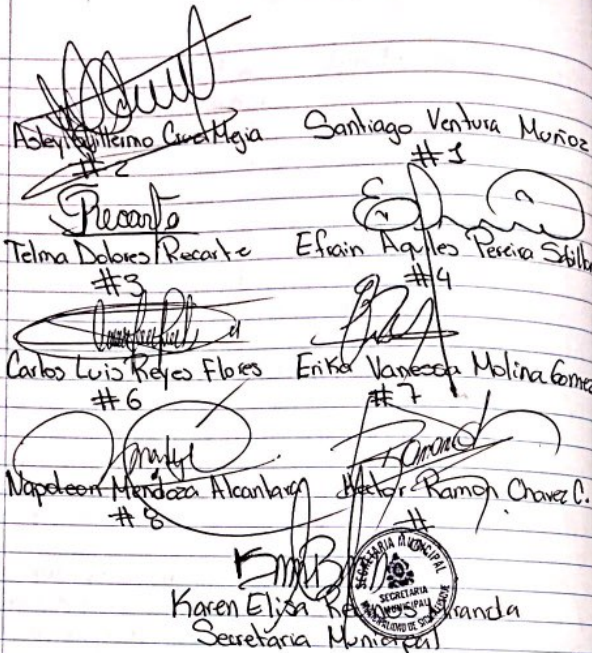 Asleyi Guillermo Cruz Mejia
#2
Santiago Ventura Muñoz
#1
Recarte
Telma Dolores Recarte
#3
Efrain Aquiles Pereira
#4
Carlos Luis Reyes Flores
#6
Erika Vanessa Molina Gomez
#7
Napoleon Mendoza Alcantara
#8
Hector Ramon Chavez C.
#
Karen Elisa Miranda
Secretaria Municipal
SECRETARIA MUNICIPAL
SECRETARIA
MUNICIPAL